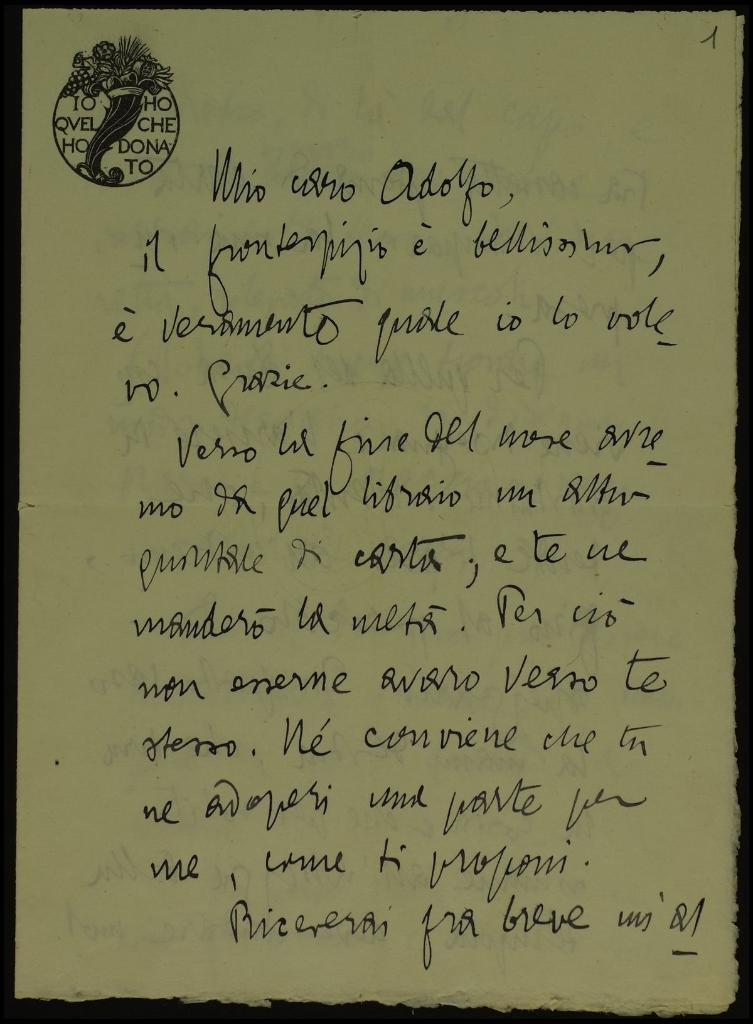 1
IO HO
QVEL CHE
HO DONA
TO
Mio caro Adolfo,
il frontespizio è bellissimo,
è veramente quale io lo vole-
vo. Grazie.
Verso la fine del mese avre-
mo da quel libraio un altro
quintale di carta; e te ne
manderò la metà. Per ciò
non esserne avaro verso te
stesso. Né conviene che tu
ne adoperi una parte per
me, come ti proponi.
Riceverai fra breve un' al-